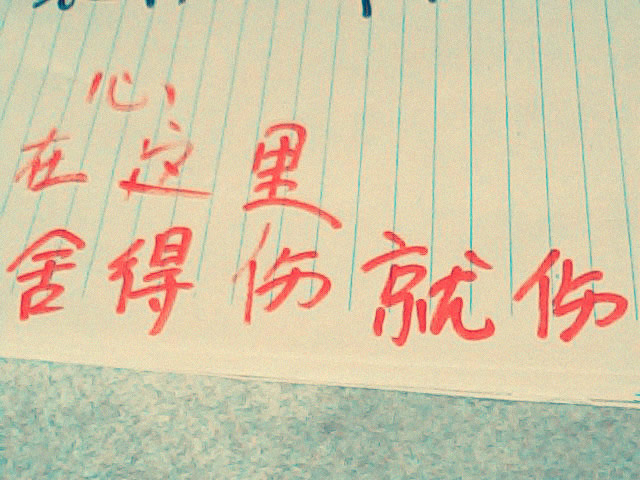 心
在这里
舍得伤就伤